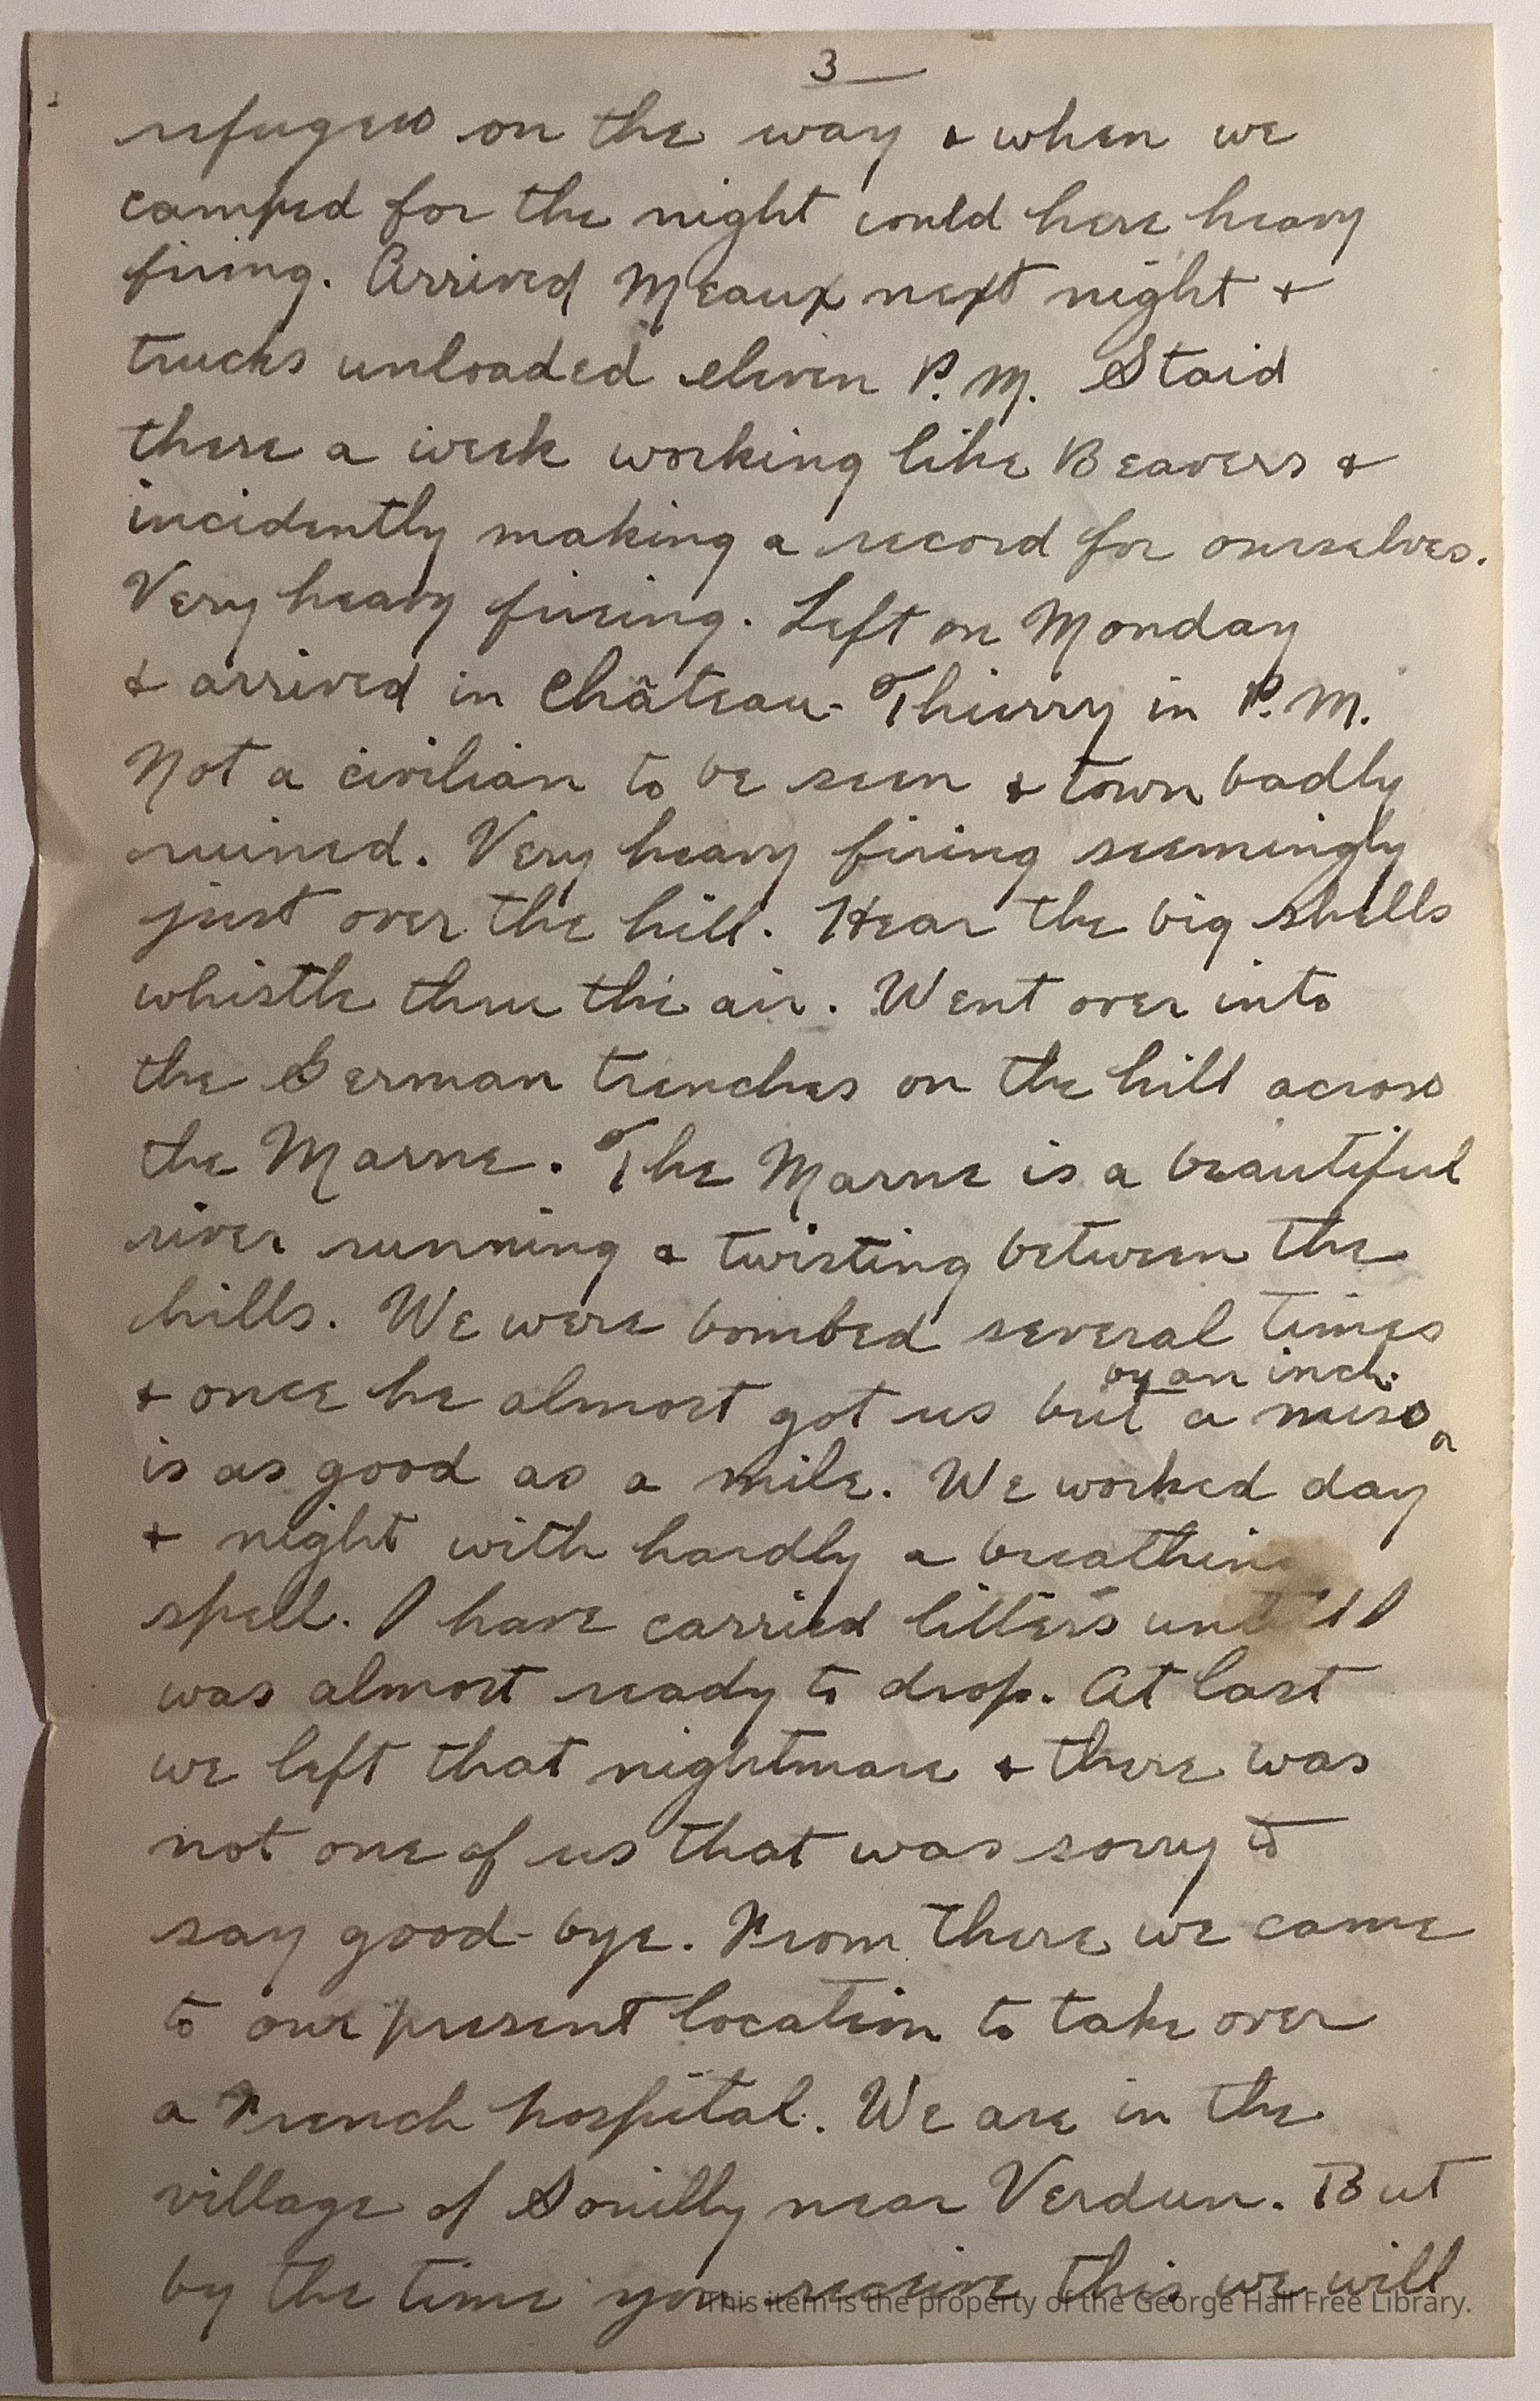 3
refugees on the way & when we
camped for the night could here heavy
firing. Arrived Meaux next night &
trucks unloaded eleven P.M. Staid
there a week working like Beavers &
incidently making a record for ourselves.
Very heavy firing. Left on Monday
& arrived in Château-Thierry in P.M.
Not a civilian to be seen & town badly
ruined. Very heavy firing seemingly
just over the hill. Hear the big shells
whistle thru the air. Went over into
the German trenches on the hill across
the Marne. The Marne is a beautiful
river running & twisting between the
hills. We were bombed several times
by an inch
& once he almost got us but a miss
is as good as a mile. We worked day
& night with hardly a breathing
spell. I have carried litters until I
was almost ready to drop. At last
we left that nightmare & there was
not one of us that was sorry to
say good-bye. From there we came
to our present location to take over
a French hospital. We are in the
village of Souilly near Verdun. But
by the time you receive this we will
This item is the property of the George Hall Free Library.